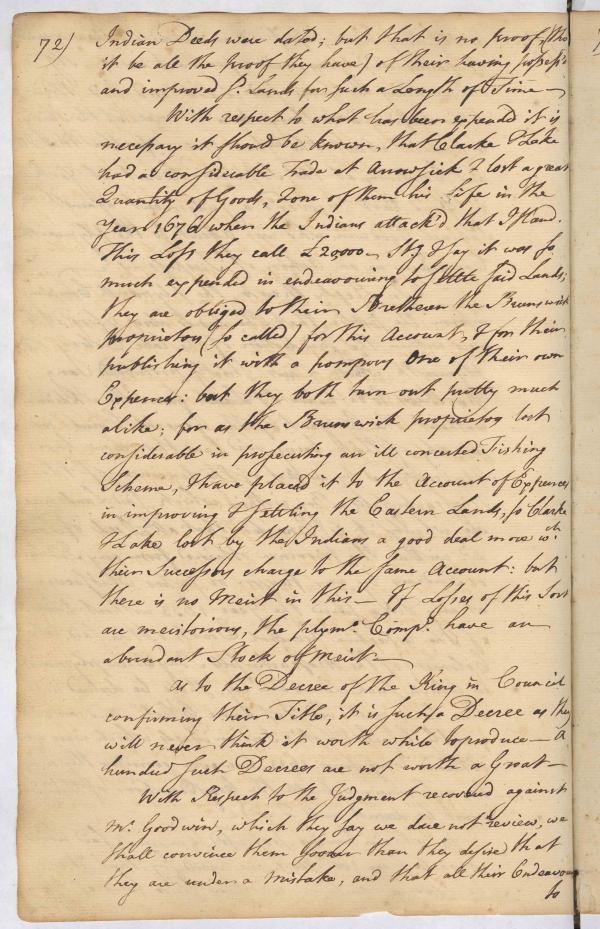 72)
Indian Deeds were dated; but that is no proof (tho
it be all the proof they have) of their having possess'd
and improved sd. Lands for such a Length of Time —
With respect to what has been expended it is
necessary it should be known, that Clarke & Lake
had a considerable Trade at Arrowsick & lost a great
Quantity of Goods, & one of them his Life in the
Year 1676 when the Indians attack'd that Island.
This Loss they call £20,000 Stg & say it was so
much expended in endeavouring to settle said Lands;
they are obliged to their Bretheren the Brunswick
proprietors (so called) for this Account, & for their
publishing it with a pompous One of their own
Expences: but they both turn out pretty much
alike; for as the Brunswick proprietors lost
considerable in prosecuting an ill concerted Fishing
Scheme, & have placed it to the Account of Expences
in improving & settling the Eastern Lands, so Clarke
& Lake lost by the Indians a good deal more wch.
their Successors charge to the same Account: but
there is no Merit in this — If Losses of this Sort
are meritorious, the plymo. Compy. have an
abundant Stock of merit —
As to the Decree of the King in Council
confirming their Title, it is such a Decree as they
will never think it worth while to produce — A
hundred such Decrees are not worth a Groat —
With Respect to the Judgment recovered against
Mr. Goodwin, which they say we dare not review, we
shall convince them sooner than they desire that
they are under a mistake, and that all their Endeavours
to